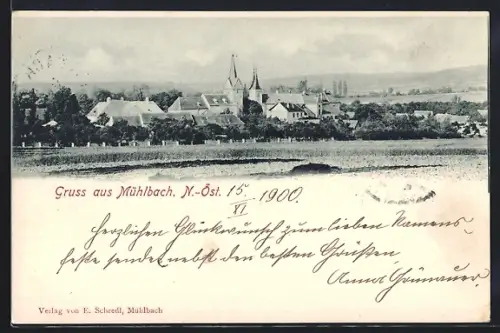 Gruss aus Mühlbach. N.-Öst. 15/VI 1900.
Herzlichen Glückwunsch zum lieben Namens-
feste sendet nebst den besten Grüßen
Anna Grünauer.
Verlag von E. Schredl, Mühlbach